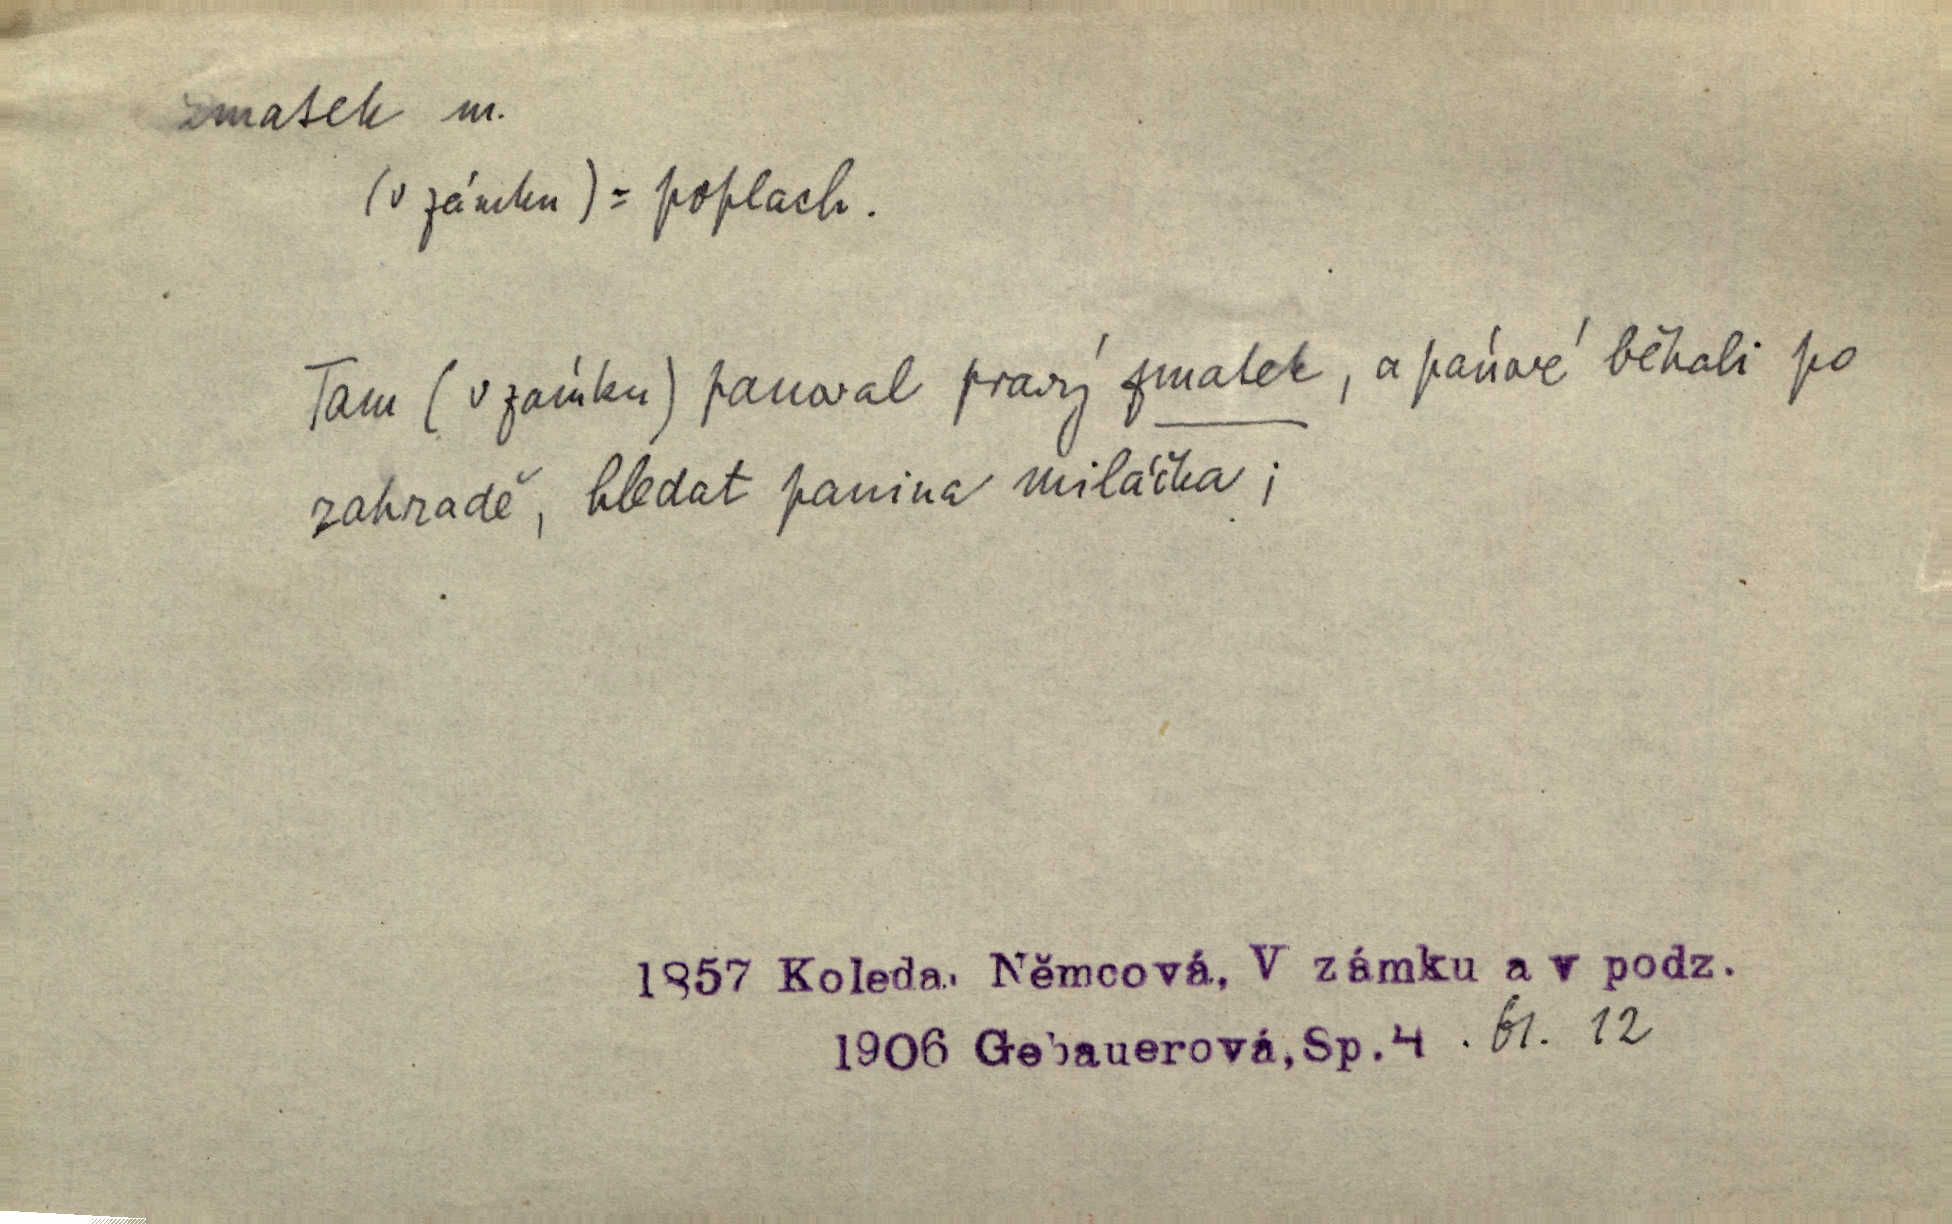 zmatek m.
(v zámku) = poplach.
Tam (v zámku) panoval pravý zmatek, a pánové běhali po
zahradě, hledat panina miláčka;
1857 Koleda. Němcová, V zámku a v podz.
1906 Gebauerová, Sp.4 . 61. 12